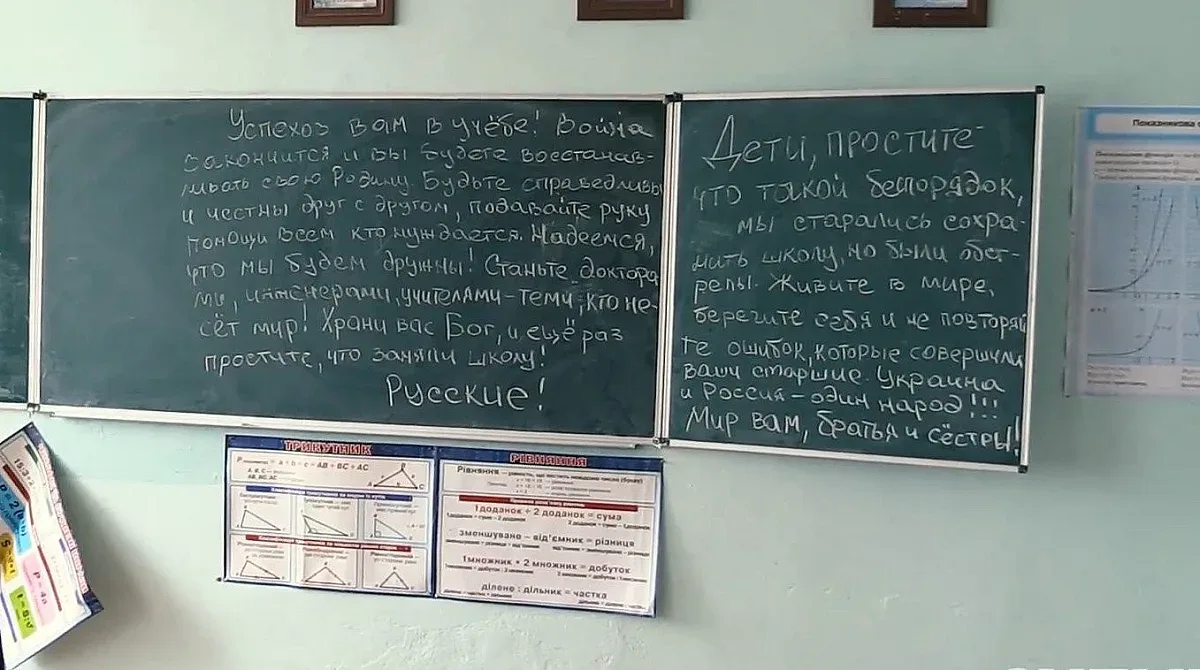 Успехов вам в учёбе! Война
закончится и вы будете восстанав-
ливать свою Родину. Будьте справедливы
и честны друг с другом, подавайте руку
помощи всем кто нуждается. Надеемся,
что мы будем дружны! Станьте доктора-
ми, инженерами, учителями – теми, кто не-
сёт мир! Храни вас Бог, и ещё раз
простите, что заняли школу!
Русские!
Дети, простите
что такой беспорядок,
мы старались сохра-
нить школу, но были обст-
релы. Живите в мире,
берегите себя и не повторяй
те ошибок, которые совершили
ваши старшие. Украина
и Россия – один народ!!!
Мир вам, братья и сёстры!
Показникова
ТРИКУТНИК
= a + b + c = AB + BC + AC
РІВНЯННЯ
Рівняння – рівність, що містить невідоме число (букву)
1доданок + 2 доданок = сума
зменшуване – від'ємник = різниця
1множник • 2 множник = добуток
ділене : дільник = частка
P = 4a